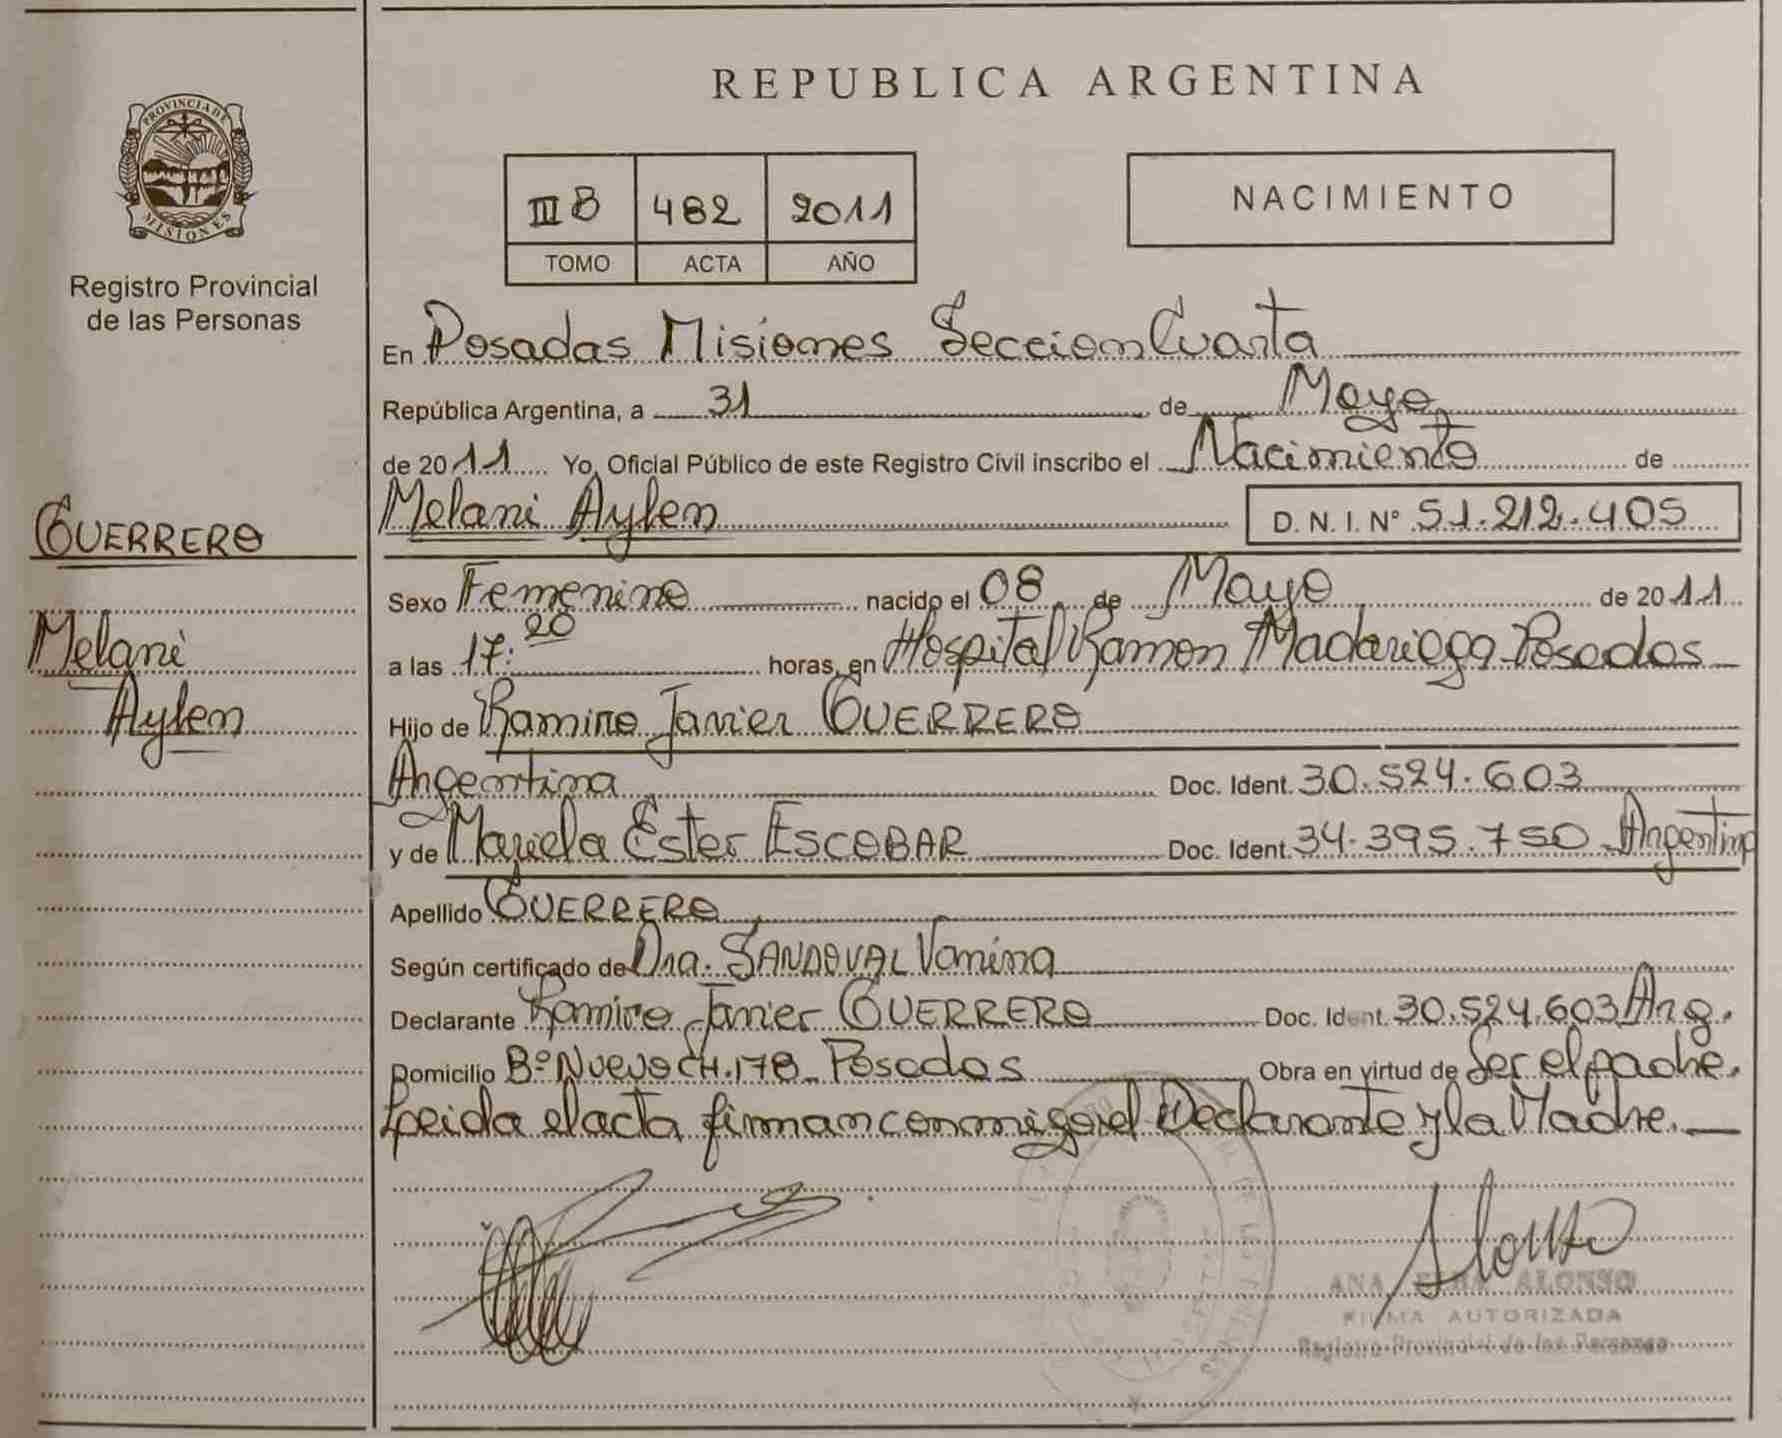 REPUBLICA ARGENTINA
PROVINCIA DE
MISIONES
Registro Provincial
de las Personas
III B 482 2011
TOMO ACTA AÑO
NACIMIENTO
En Posadas Misiones Seccion Cuarta
República Argentina, a 31 de Mayo
de 2011 Yo, Oficial Público de este Registro Civil inscribo el Nacimiento de
Melani Aylen D. N. I. Nº 51.212.405
GUERRERO
Melani
Aylen
Sexo Femenino nacido el 08 de Mayo de 2011
a las 17:20 horas, en Hospital Ramon Madariaga Posadas
Hijo de Ramiro Javier GUERRERO
Argentina Doc. Ident. 30.524.603
y de Mariela Ester ESCOBAR Doc. Ident. 34.395.750 Argentina
Apellido GUERRERO
Según certificado de Dra. SANDOVAL Vanina
Declarante Ramiro Javier GUERRERO Doc. Ident. 30.524.603 Arg.
Domicilio Bº Nuevo CH.178 Posadas Obra en virtud de Ser el padre.
Leida el acta firman conmigo el Declarante y la Madre.
Alonso
ANA ALONSO
FIRMA AUTORIZADA
Registro Provincial de las Personas